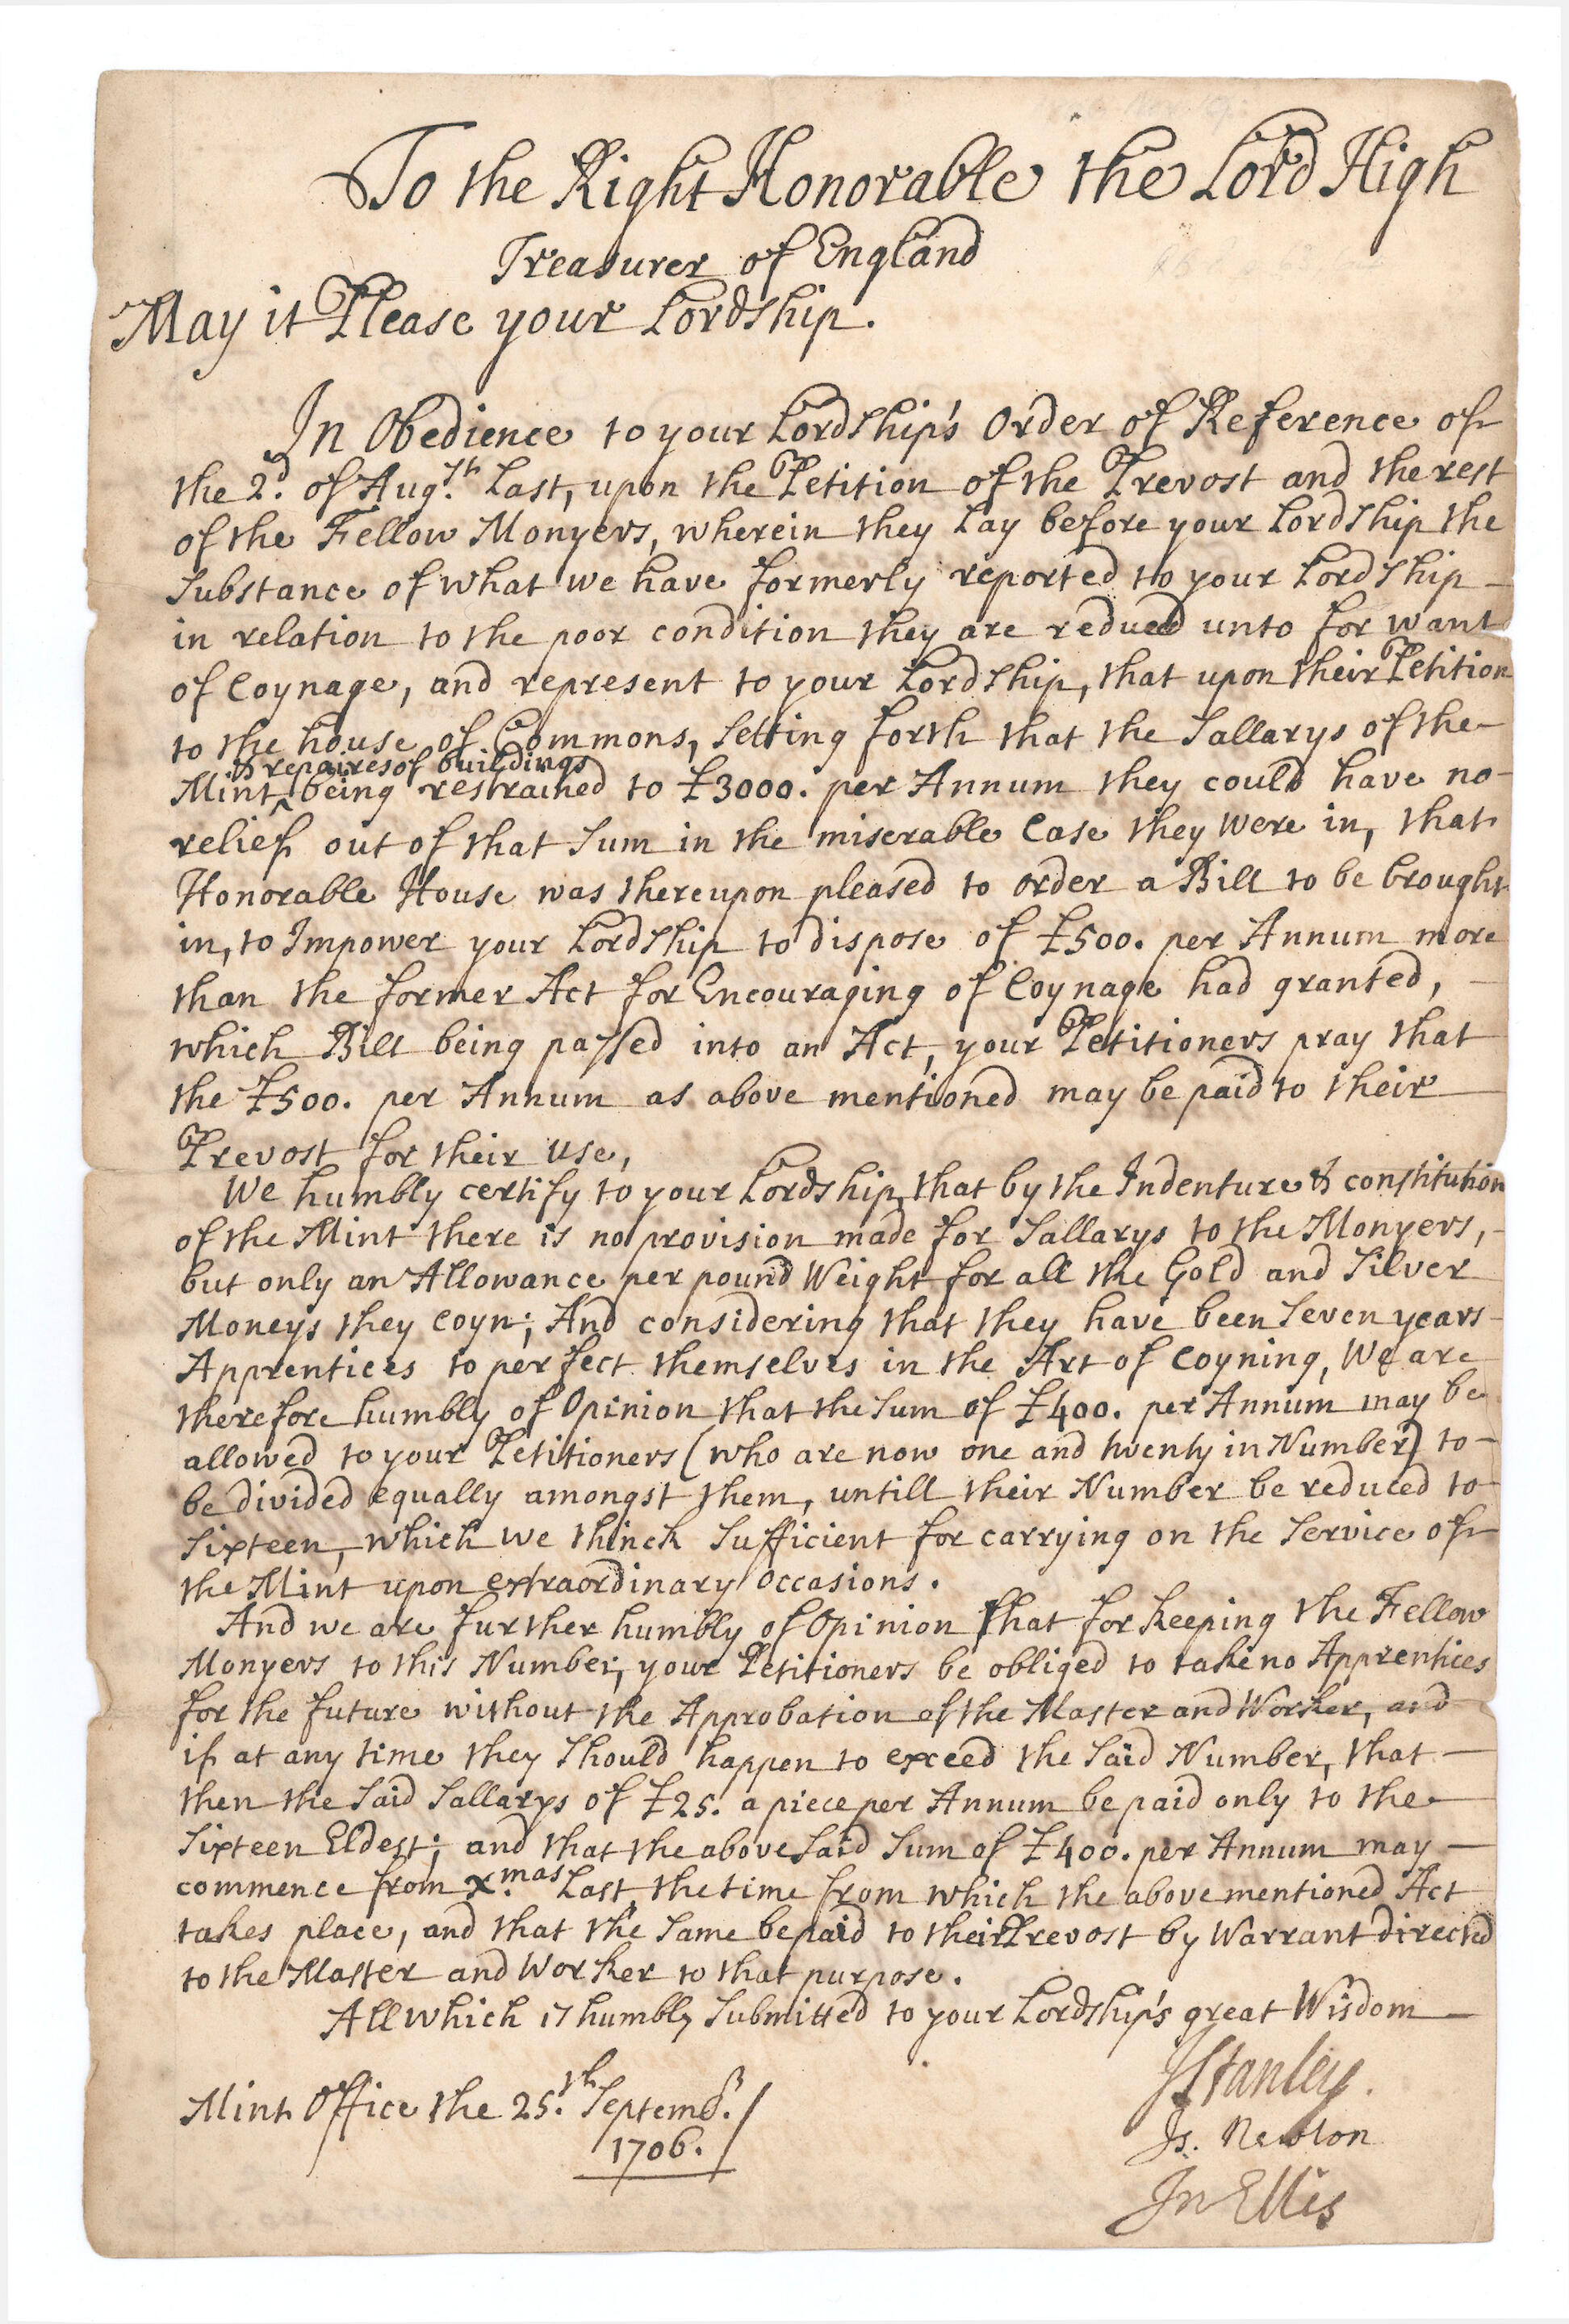 To the Right Honorable the Lord High
Treasurer of England
May it Please your Lordship.
In Obedience to your Lordship's Order of Reference of
the 2d. of Augth. Last, upon the Petition of the Prevost and the rest
of the Fellow Monyers, wherein they Lay before your Lordship the
Substance of what we have formerly reported to your Lordship –
in relation to the poor condition they are reduced unto for want
of Coynage, and represent to your Lordship, that upon their Petition
to the house of Commons, Setting forth that the Sallarys of the –
& repaires of buildings
Mint ^ being restrained to £3000. per Annum they could have no –
relief out of that Sum in the miserable Case they Were in, that
Honorable House was thereupon pleased to order a Bill to be brought
in, to Impower your Lordship to dispose of £500. per Annum more
than the former Act for Encouraging of Coynage had granted, –
which Bill being passed into an Act, your Petitioners pray that
the £500. per Annum as above mentioned may be paid to their –
Prevost for their use,
We humbly certify to your Lordship, that by the Indenture & constitution
of the Mint there is no provision made for Sallarys to the Monyers, –
but only an Allowance per pound Weight for all the Gold and Silver
Moneys they Coyn; And considering that they have been Seven years –
Apprentices to perfect themselves in the Art of Coyning, We are
therefore humbly of Opinion that the Sum of £400. per Annum may be
allowed to your Petitioners (who are now one and twenty in Number) to –
be divided equally amongst them, untill their Number be reduced to
Sixteen, which we thinck Sufficient for carrying on the Service of
the Mint upon extraordinary occasions.
And we are further humbly of Opinion that for Keeping the Fellow
Monyers to this Number, your Petitioners be obliged to take no Apprentices
for the future without the Approbation of the Master and Worker, and
if at any time they Should happen to exceed the Said Number, that –
then the Said Sallarys of £25. a piece per Annum be paid only to the –
Sixteen Eldest; and that the above Said Sum of £400. per Annum may –
commence from Xmas. Last, the time from which the above mentioned Act
takes place, and that the Same be paid to their Prevost by Warrant directed
to the Master and Worker to that purpose.
All which is humbly Submitted to your Lordship's great Wisdom –
Mint Office the 25th. Septembr. /
1706.
JStanley.
Is. Newton
Jn Ellis